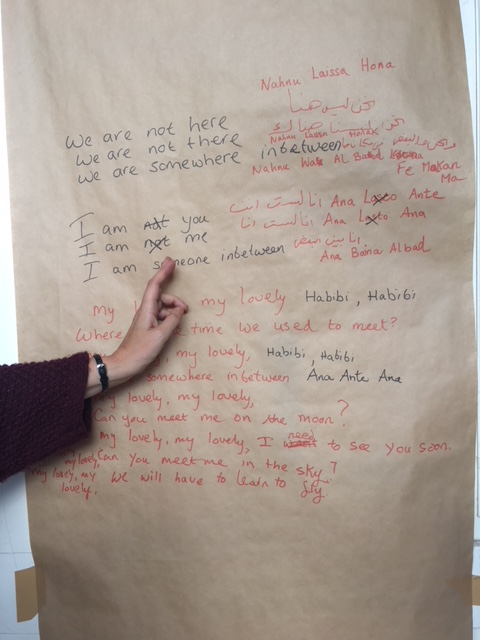 Nahnu Laissa Hona
نحن ليس هنا
We are not here
Nahnu Laissa Honak
We are not there
we are somewhere inbetween
Nahnu Al Baad
Fe Makan
Ma
I am not you انا لست انت Ana Lasto Ante
I am not me انا لست انا Ana Lasto Ana
I am someone inbetween انا بين البعض
Ana Baina Albad
my my lovely Habibi, Habibi
Where time we used to meet?
my lovely, Habibi, Habibi
somewhere inbetween Ana Ante Ana
my lovely, my lovely,
Can you meet me on the moon?
my lovely, my lovely, I need to see you soon.
my lovely, Can you meet me in the sky?
my lovely, my we will have to learn to fly
lovely,